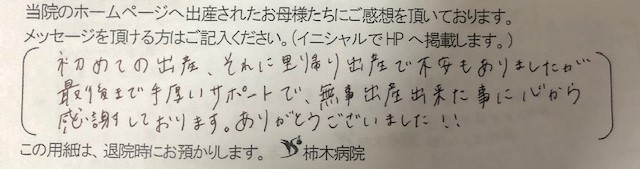 当院のホームページへ出産されたお母様たちにご感想を頂いております。
メッセージを頂ける方はご記入ください。(イニシャルでHPへ掲載します。)
初めての出産、それに里帰り出産で不安もありましたが
最後まで手厚いサポートで、無事出産出来た事に心から
感謝しております。ありがとうございました!!
この用紙は、退院時にお預かりします。 柿木病院